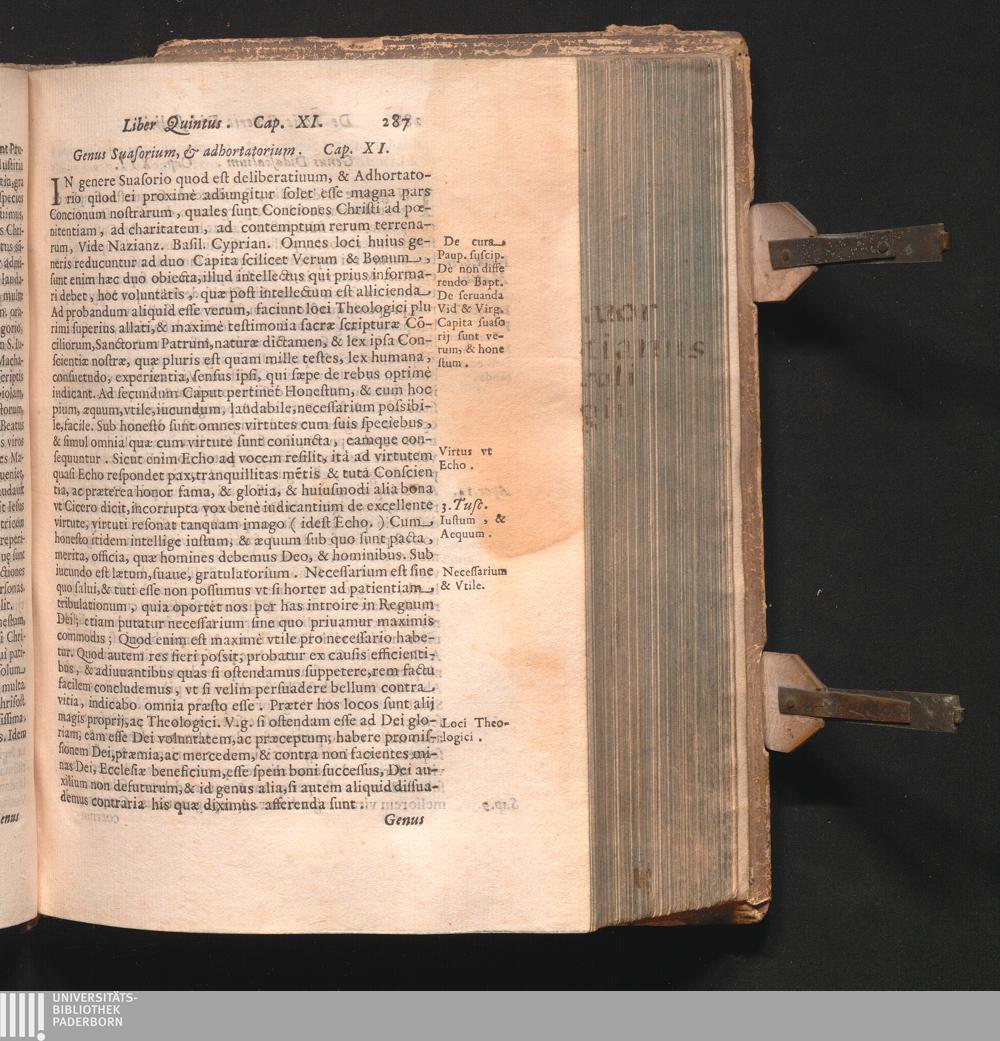 Liber Quintus. Cap. XI. 287
Genus Suaſorium, & adhortatorium. Cap. XI.
IN genere Suaſorio quod eſt deliberatiuum, & Adhortato-
rio quod ei proximè adiungitur ſolet eſſe magna pars
Concionum noſtrarum, quales ſunt Conciones Chriſti ad pœ-
nitentiam, ad charitatem, ad contemptum rerum terrena-
rum, Vide Nazianz. Baſil. Cyprian. Omnes loci huius ge-
neris reducuntur ad duo Capita ſcilicet Verum & Bonum,
ſunt enim hæc duo obiecta, illud intellectus qui prius informa-
ri debet, hoc voluntatis, quæ poſt intellectum eſt allicienda
Ad probandum aliquid eſſe verum, faciunt loci Theologici plu
rimi ſuperius allati, & maximè teſtimonia ſacræ ſcripturæ Cō-
ciliorum, Sanctorum Patrum, naturæ dictamen, & lex ipſa Con-
ſcientiæ noſtræ, quæ pluris eſt quam mille teſtes, lex humana,
conſuetudo, experientia, ſenſus ipſi, qui ſæpe de rebus optimè
iudicant. Ad ſecundum Caput pertinet Honeſtum, & cum hoc
pium, æquum, vtile, iucundum, laudabile, neceſſarium poſsibi-
le, facile. Sub honeſto ſunt omnes virtutes cum ſuis ſpeciebus,
& ſimul omnia quæ cum virtute ſunt coniuncta, eamque con-
ſequuntur. Sicut enim Echo ad vocem reſilit, ità ad virtutem
quaſi Echo reſpondet pax, tranquillitas mētis & tuta Conſcien
tia, ac præterea honor fama, & gloria, & huiuſmodi alia bona
vt Cicero dicit, incorrupta vox benè iudicantium de excellente
virtute, virtuti reſonat tanquam imago (ideſt Echo.) Cum
honeſto itidem intellige iuſtum, & æquum ſub quo ſunt pacta,
merita, officia, quæ homines debemus Deo, & hominibus. Sub
iucundo eſt lætum, ſuaue, gratulatorium. Neceſſarium eſt ſine
quo ſalui, & tuti eſſe non poſſumus vt ſi horter ad patientiam
tribulationum, quia oportèt nos per has introire in Regnum
Dei; etiam putatur neceſſarium ſine quo priuamur maximis
commodis; Quod enim eſt maximè vtile pro neceſſario habe-
tur. Quod autem res fieri poſsit, probatur ex cauſis efficienti-
bus, & adiuuantibus quas ſi oſtendamus ſuppetere, rem factu
facilem concludemus, vt ſi velim perſuadere bellum contra
vitia, indicabo omnia præſto eſſe. Præter hos locos ſunt alij
magis proprij, ac Theologici. V.g. ſi oſtendam eſſe ad Dei glo-
riam, eam eſſe Dei voluntatem, ac præceptum, habere promiſ-
ſionem Dei, præmia, ac mercedem, & contra non facientes mi-
nas Dei, Eccleſiæ beneficium, eſſe ſpem boni ſucceſſus, Dei au-
xilium non defuturum, & id genus alia, ſi autem aliquid diſſua-
demus contraria his quæ diximus afferenda ſunt.
Genus
De cura
Paup. ſuſcip.
De non diffe
rendo Bapt.
De ſeruanda
Vid & Virg.
Capita ſuaſo
rij ſunt ve-
rum, & hone
ſtum.
Virtus vt
Echo.
3. Tuſc.
Iuſtum, &
Aequum.
Neceſſarium
& Vtile.
Loci Theo-
logici.
UNIVERSITÄTS-
BIBLIOTHEK
PADERBORN